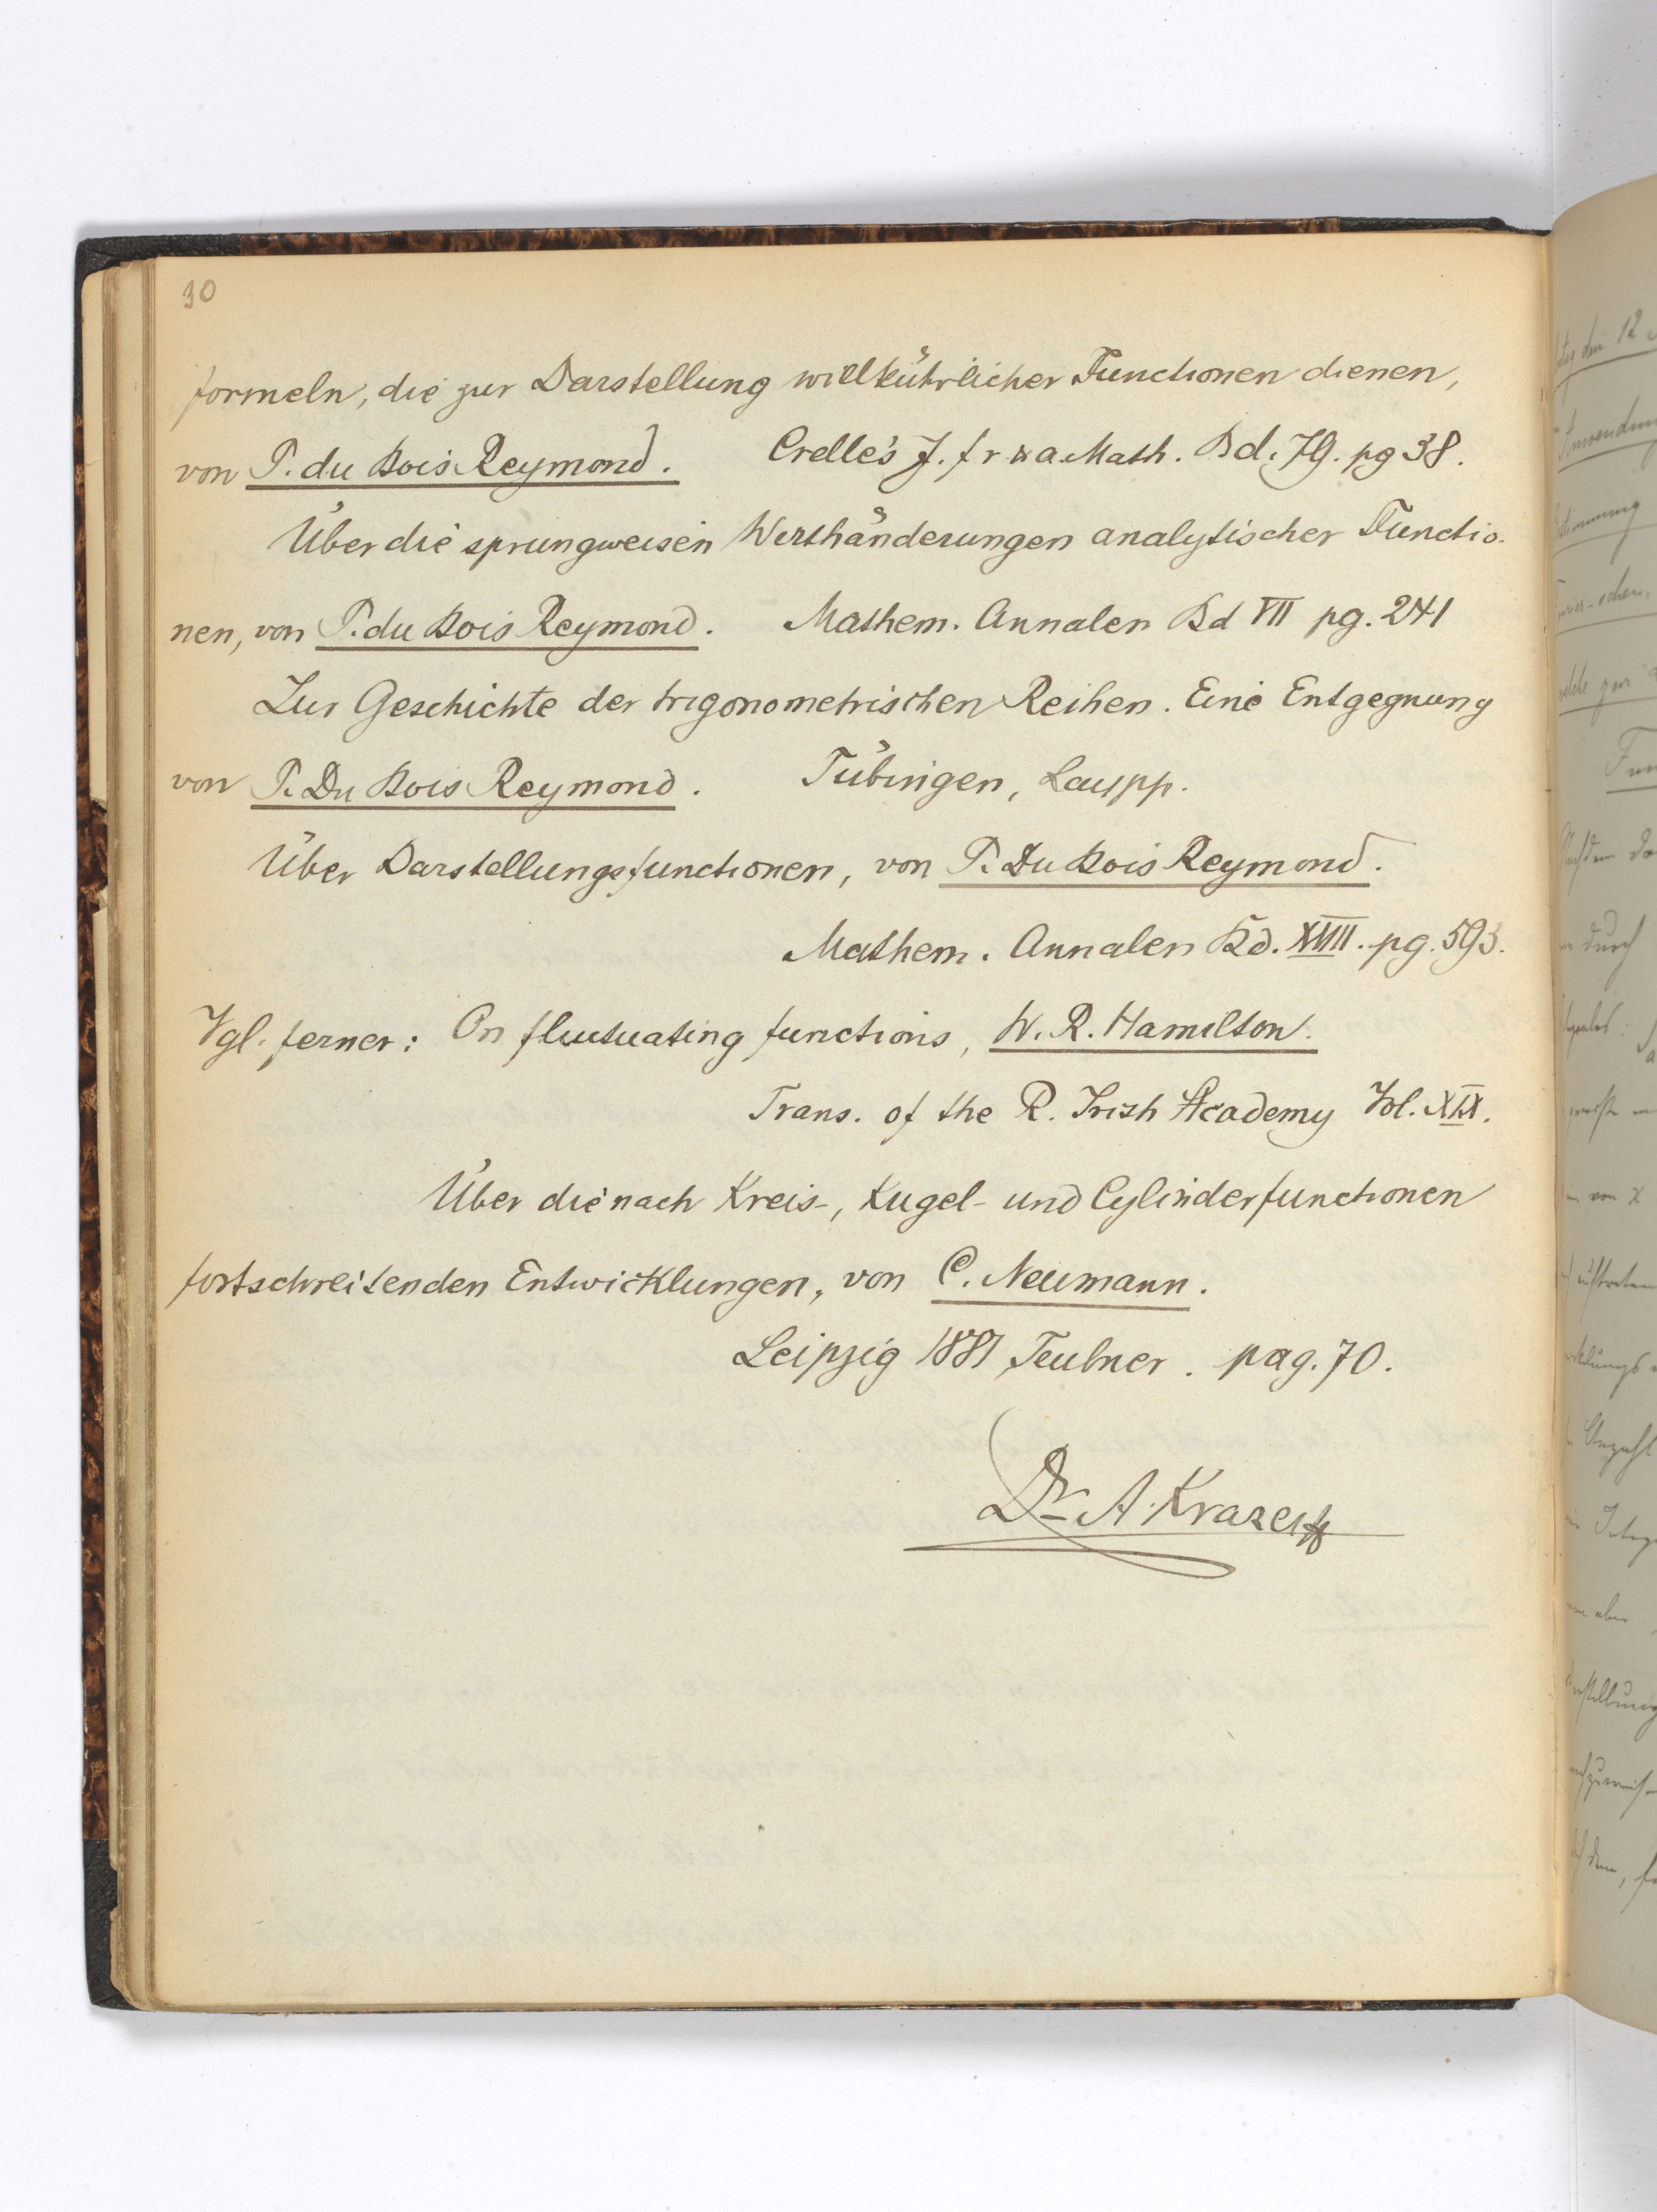 30
formeln, die zur Darstellung willkührlicher Functionen dienen,
von P. du Bois Reymond. Crelle's J. f r u a. Math. Bd. 79. pg 38.
Über die sprungweisen Werthänderungen analytischer Functio-
nen, von P. du Bois Reymond. Mathem. Annalen Bd VII pg. 241
Zur Geschichte der trigonometrischen Reihen. Eine Entgegnung
von P. Du Bois Reymond. Tübingen, Laupp.
Über Darstellungsfunctionen, von P. Du Bois Reymond.
Mathem. Annalen Bd. XVIII. pg. 593.
Vgl. ferner: On fluctuating functions, W. R. Hamilton.
Trans. of the R. Irish Academy Vol. XIX.
Über die nach Kreis-, Kugel- und Cylinderfunctionen
fortschreitenden Entwicklungen, von C. Neumann.
Leipzig 1881 Teubner. pag. 70.
Dr A. Krazer